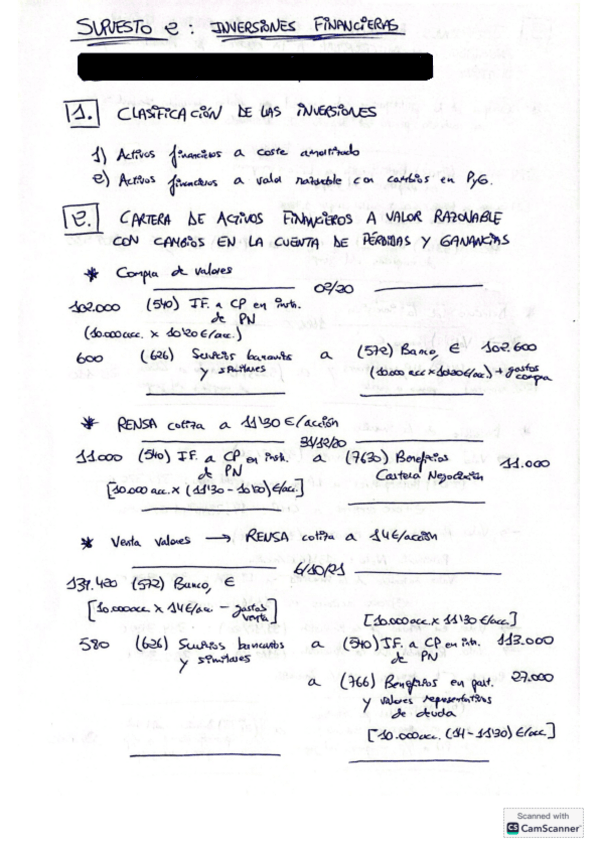 SUPUESTO 2: INVERSIONES FINANCIERAS
1. CLASIFICACIÓN DE LAS INVERSIONES
1) Activos financieros a coste amortizado
2) Activos financieros a valor razonable con cambios en PyG.
2. CARTERA DE ACTIVOS FINANCIEROS A VALOR RAZONABLE
CON CAMBIOS EN LA CUENTA DE PÉRDIDAS Y GANANCIAS
* Compra de valores
02/20
102.000 (540) IF. a CP en inst.
de PN
(10.000 acc. x 10'20 €/acc.)
600 (626) Servicios bancarios a (572) Banco, € 102.600
y similares (10.000 acc x 10'20 €/acc.) + gastos
compra
* RENSA cotiza a 11'30 €/acción
31/12/20
11.000 (540) IF. a CP en inst. a (7630) Beneficios 11.000
de PN Cartera Negociación
[10.000 acc. x (11'30 - 10'20) €/acc.]
* Venta valores → RENSA cotiza a 14 €/acción
6/10/21
139.420 (572) Banco, €
[10.000 acc x 14 €/acc - gastos
venta]
[10.000 acc. x 11'30 €/acc.]
580 (626) Servicios bancarios a (540) IF. a CP en inst. 113.000
y similares de PN
a (766) Beneficios en part. 27.000
y valores representativos
de deuda
[10.000 acc. (14 - 11'30) €/acc.]
Scanned with
CS CamScanner